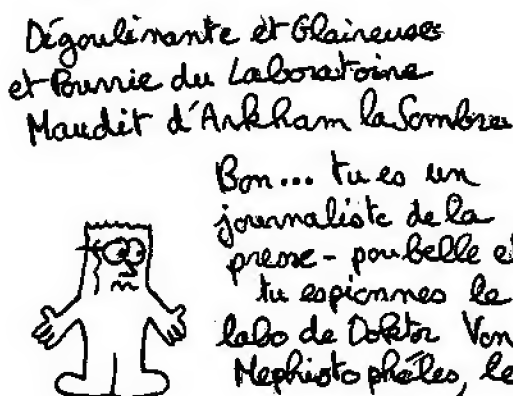 Dégoulinante et Glaireuse
et Pourrie du Laboratoire
Maudit d'Arkham la Sombre
Bon... tu es un
journaliste de la
presse-poubelle et
tu espionnes le
labo de Doktor Von
Mephistophélès, le